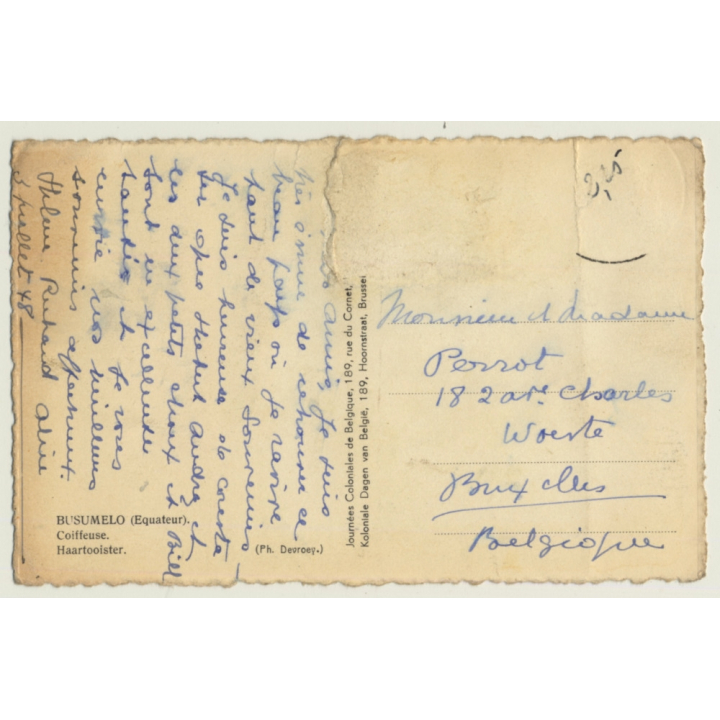 Je suis
très émue de retrouver ce
beau pays où je revire
tant de vieux souvenirs
Je suis heureuse de
les deux petits choux et Bill
sont en excellente
santé et Je vous
envoie vos meilleurs
souvenirs affectueux.
Richard
3 Juillet 48
BUSUMELO (Equateur).
Coiffeuse.
Haartooister.
(Ph. Devroey.)
Journées Coloniales de Belgique, 189, rue du Cornet,
Koloniale Dagen van België, 189, Hoornstraat, Brussel
Monsieur et Madame
Perrot
182 ave Charles
Woeste
Bruxelles
Belgique